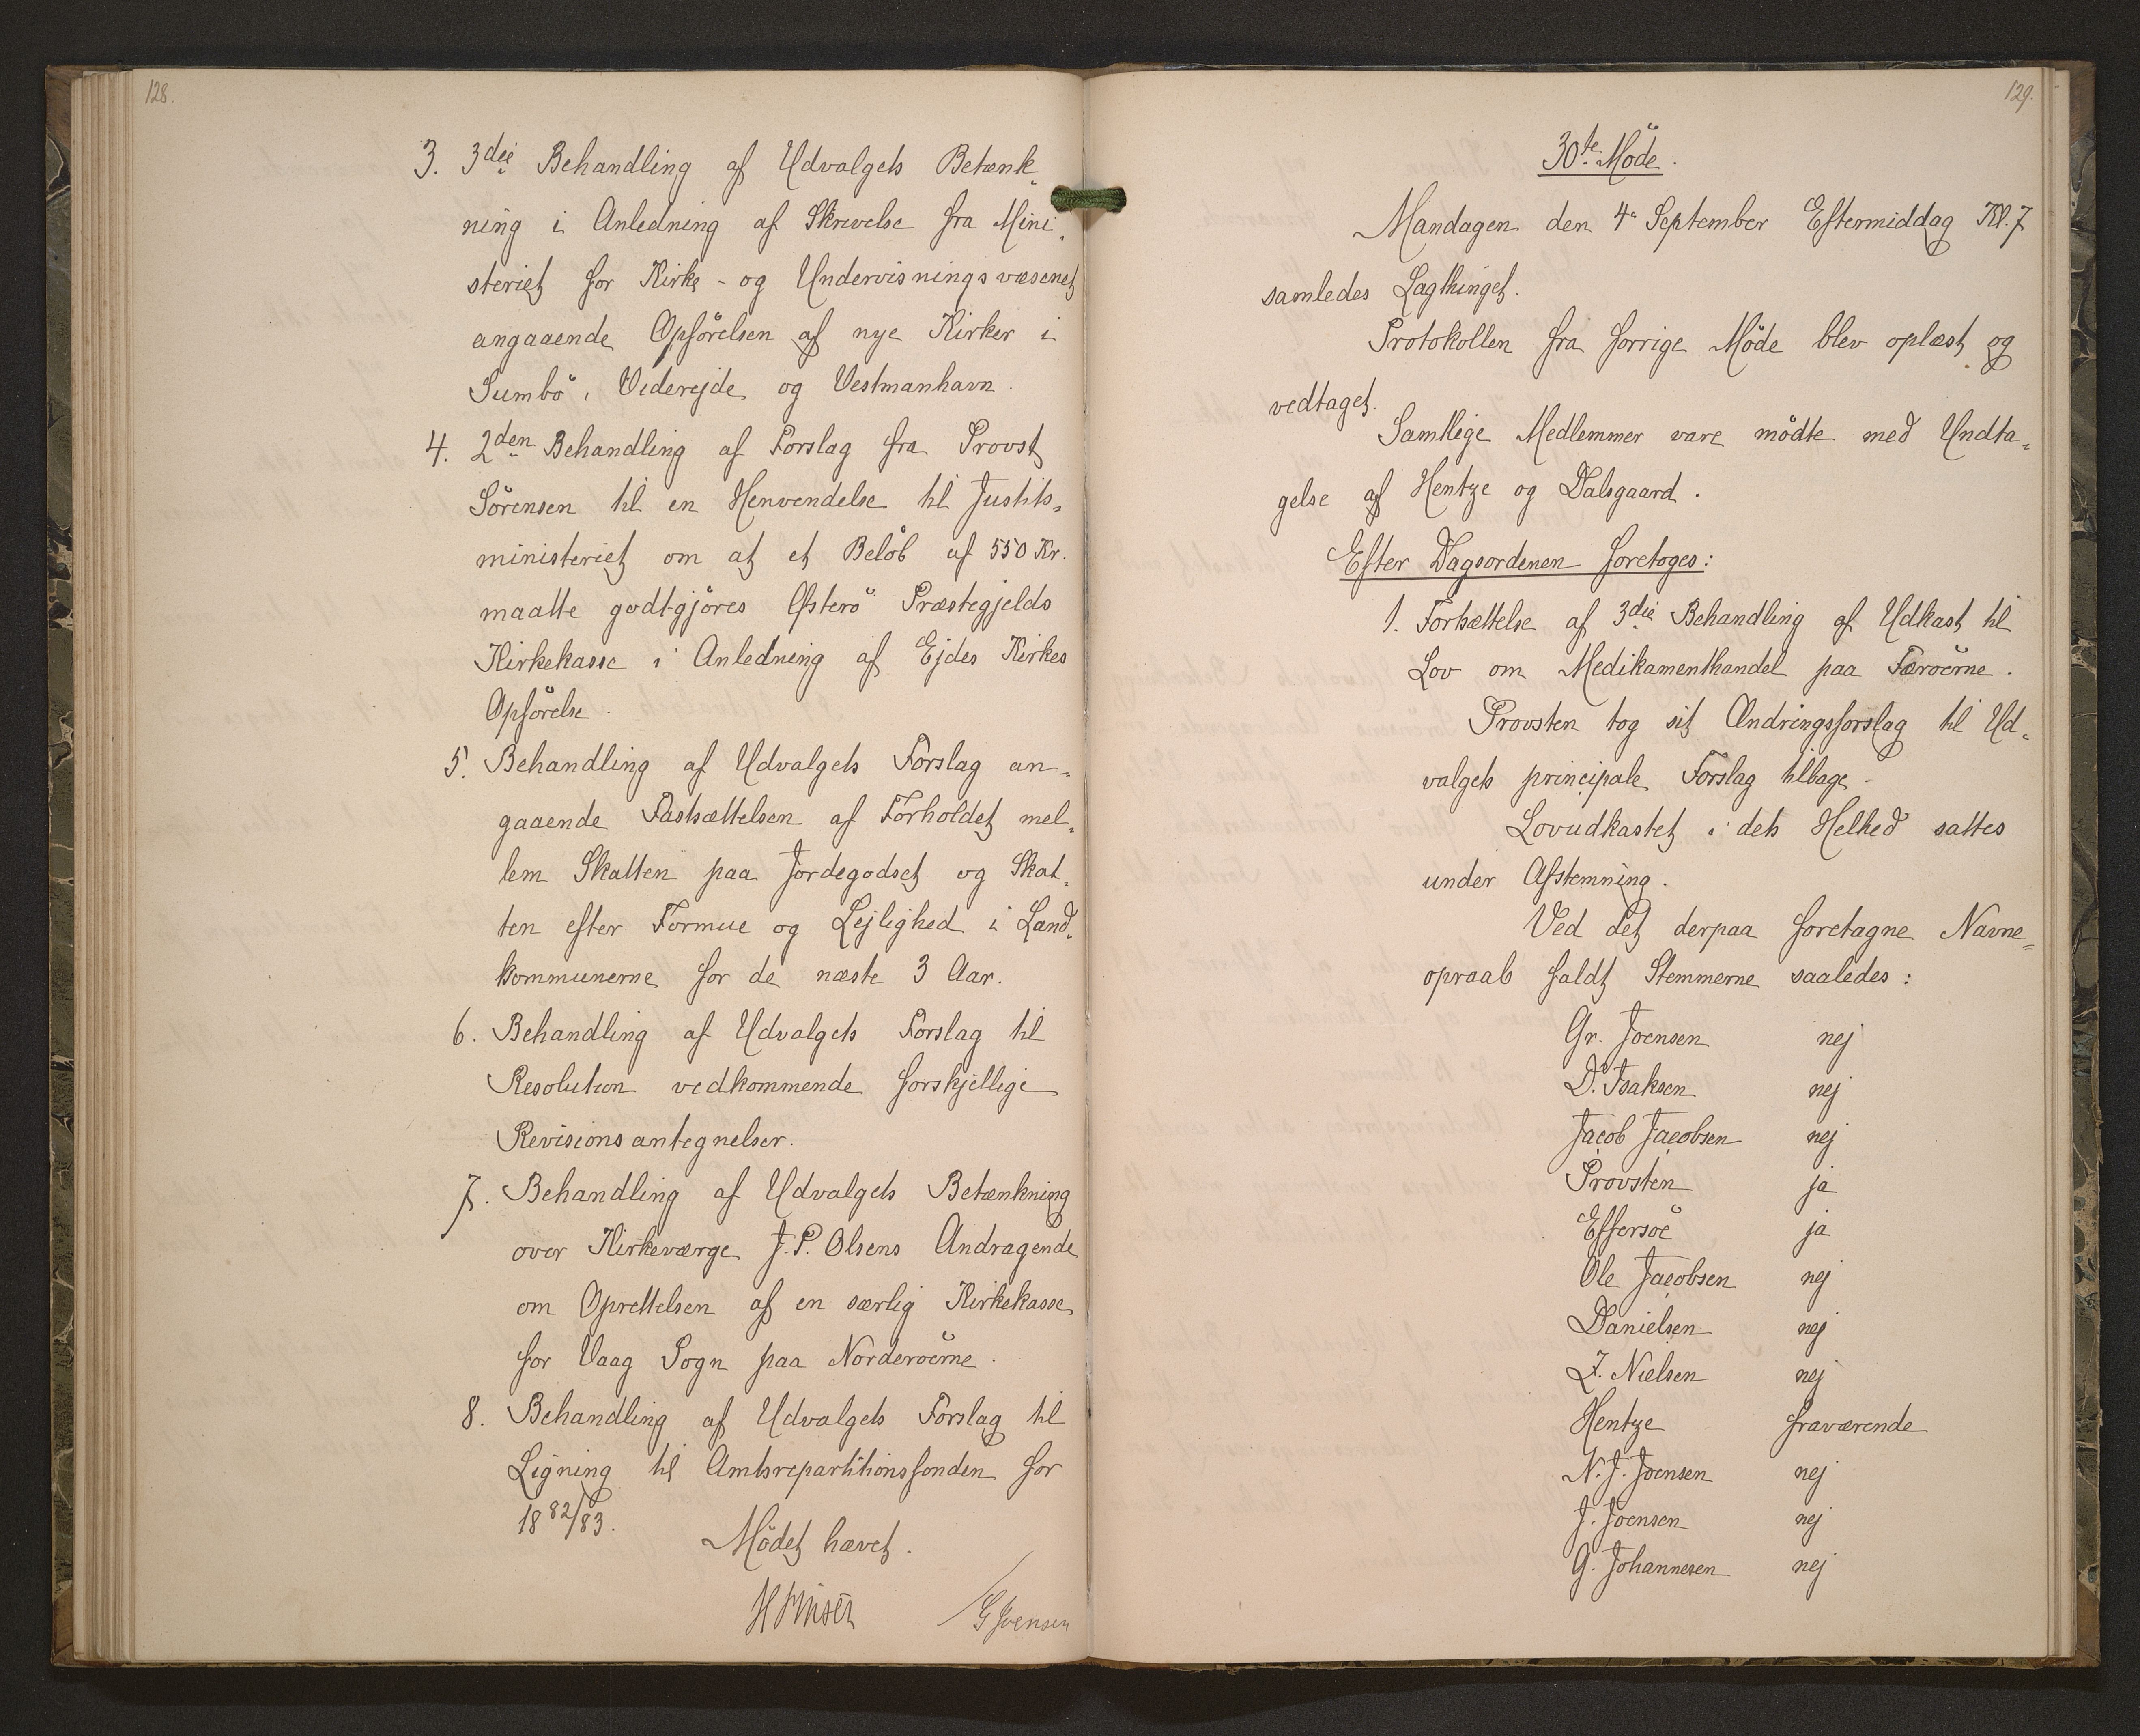 128.
3. 3die Behandling af Udvalgets Betænk-
ning i Anledning af Skrivelse fra Mini-
steriet for Kirke- og Undervisningsvæsenet
angaaende Opförelsen af nye Kirker i
Sumbö, Viderejde og Vestmanhavn.
4. 2den Behandling af Forslag fra Provst
Sörensen til en Henvendelse til Justits-
ministeriet om at et Belöb af 550 Kr.
maatte godtgjöres Österö Præstegjelds
Kirkekasse i Anledning af Ejdes Kirkes
Opförelse.
5. Behandling af Udvalgets Forslag an-
gaaende Fastsættelsen af Forholdet mel-
lem Skatten paa Jordegodset og Skat-
ten efter Formue og Lejlighed i Land-
kommunerne for de næste 3 Aar.
6. Behandling af Udvalgets Forslag til
Resolution vedkommende forskjellige
Revisionsantegnelser.
7. Behandling af Udvalgets Betænkning
over Kirkeværge J.P. Olsens Andragende
om Oprettelsen af en særlig Kirkekasse
for Vaag Sogn paa Norderöerne.
8. Behandling af Udvalgets Forslag til
Ligning til Amtsrepartitionsfonden for
1882/83.
Mödet hævet.
H Finsen G Joensen
129.
30te Möde.
Mandagen den 4. September Eftermiddag Kl. 7
samledes Lagthinget.
Protokollen fra forrige Möde blev oplæst og
vedtaget.
Samtlige Medlemmer vare mödte med Undta-
gelse af Hentze og Dalsgaard.
Efter Dagsordenen foretoges:
1. Fortsættelse af 3die Behandling af Udkast til
Lov om Medikamenthandel paa Færöerne.
Provsten tog sit Ændringsforslag til Ud-
valgets principale Forslag tilbage.
Lovudkastet i dets Helhed sattes
under Afstemning.
Ved det derpaa foretagne Navne=
opraab faldt Stemmerne saaledes:
Gr. Joensen nej
D. Isaksen nej
Jacob Jacobsen nej
Provsten ja
Effersöe ja
Ole Jacobsen nej
Danielsen nej
Z. Nielsen nej
Hentze fraværende
N. J. Joensen nej
J. Joensen nej
G. Johannesen nej